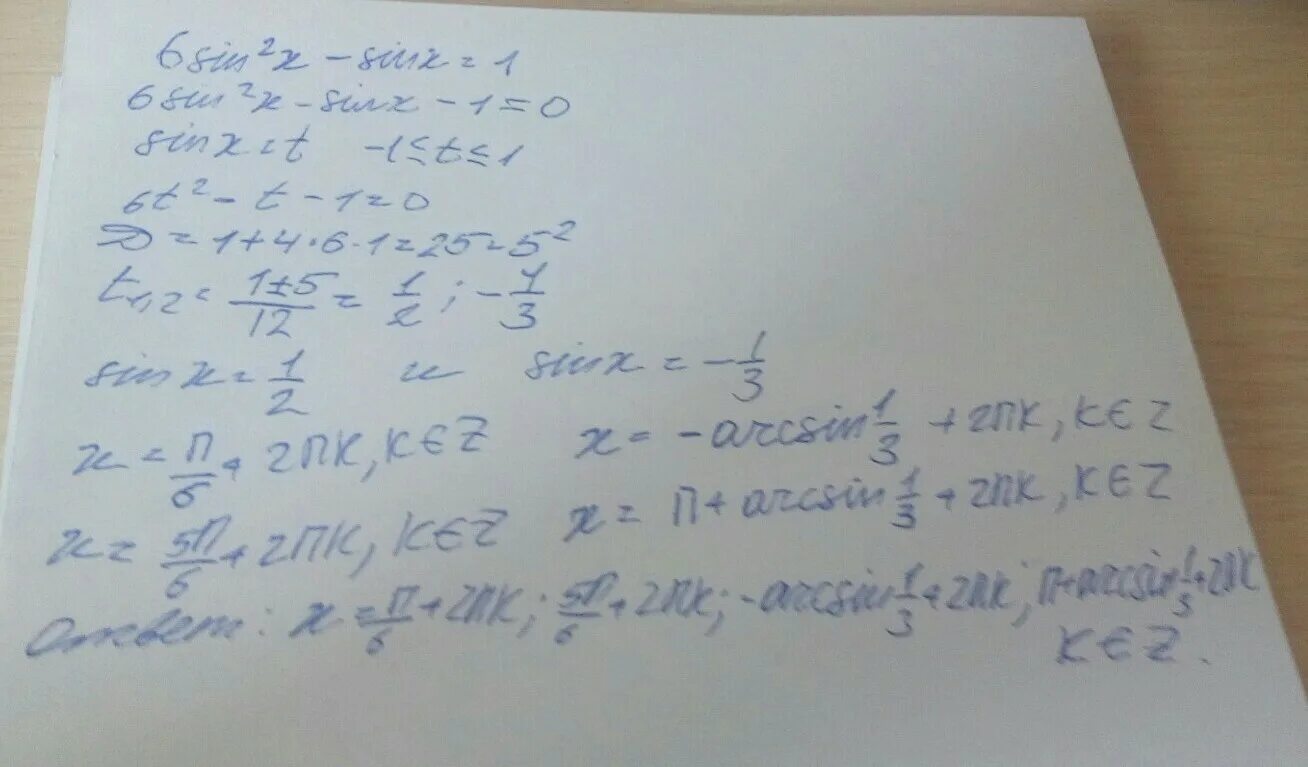 6sin²x - sinx = 1
6sin²x - sinx - 1 = 0
sinx = t -1 ≤ t ≤ 1
6t² - t - 1 = 0
D = 1 + 4·6·1 = 25 = 5²
t₁,₂ = (1±5)/12 = 1/2 ; -1/3
sinx = 1/2 и sinx = -1/3
x = П/6 + 2ПК, К ∈ Z x = -arcsin 1/3 + 2ПК, К ∈ Z
x = 5П/6 + 2ПК, К ∈ Z x = П + arcsin 1/3 + 2ПК, К ∈ Z
Ответ: x = П/6 + 2ПК; 5П/6 + 2ПК; -arcsin 1/3 + 2ПК; П + arcsin 1/3 + 2ПК
К ∈ Z.